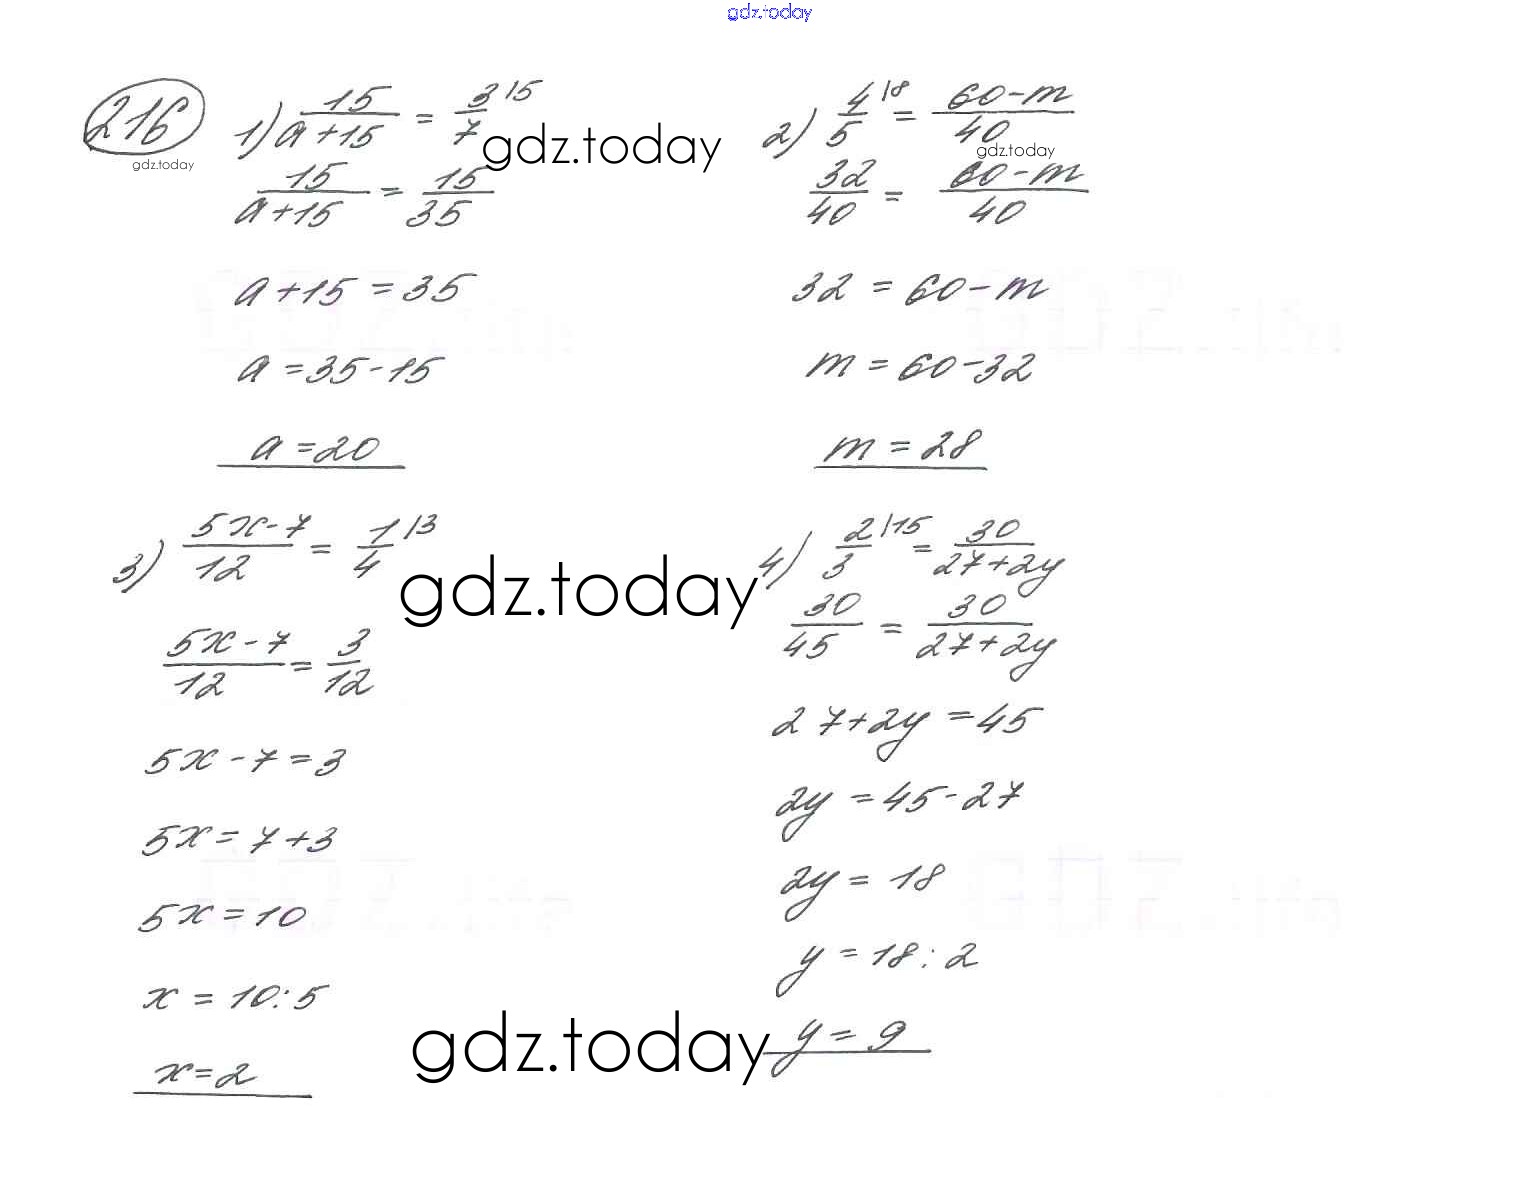 gdz.today
216
gdz.today
1) 15/(a+15) = 3/7 |5
gdz.today
15/(a+15) = 15/35
a+15 = 35
a = 35-15
a = 20
2) 4/5 |8 = (60-m)/40
gdz.today
32/40 = (60-m)/40
32 = 60-m
m = 60-32
m = 28
3) (5x-7)/12 = 1/4 |3
gdz.today
(5x-7)/12 = 3/12
5x-7 = 3
5x = 7+3
5x = 10
x = 10:5
x = 2
gdz.today
4) 2/3 |15 = 30/(27+2y)
30/45 = 30/(27+2y)
27+2y = 45
2y = 45-27
2y = 18
y = 18:2
y = 9